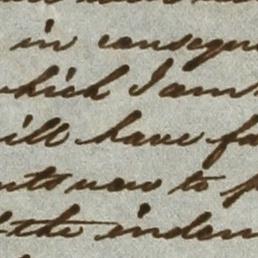 in conseque
which I am
ill have fa
nts now to p
f the indem